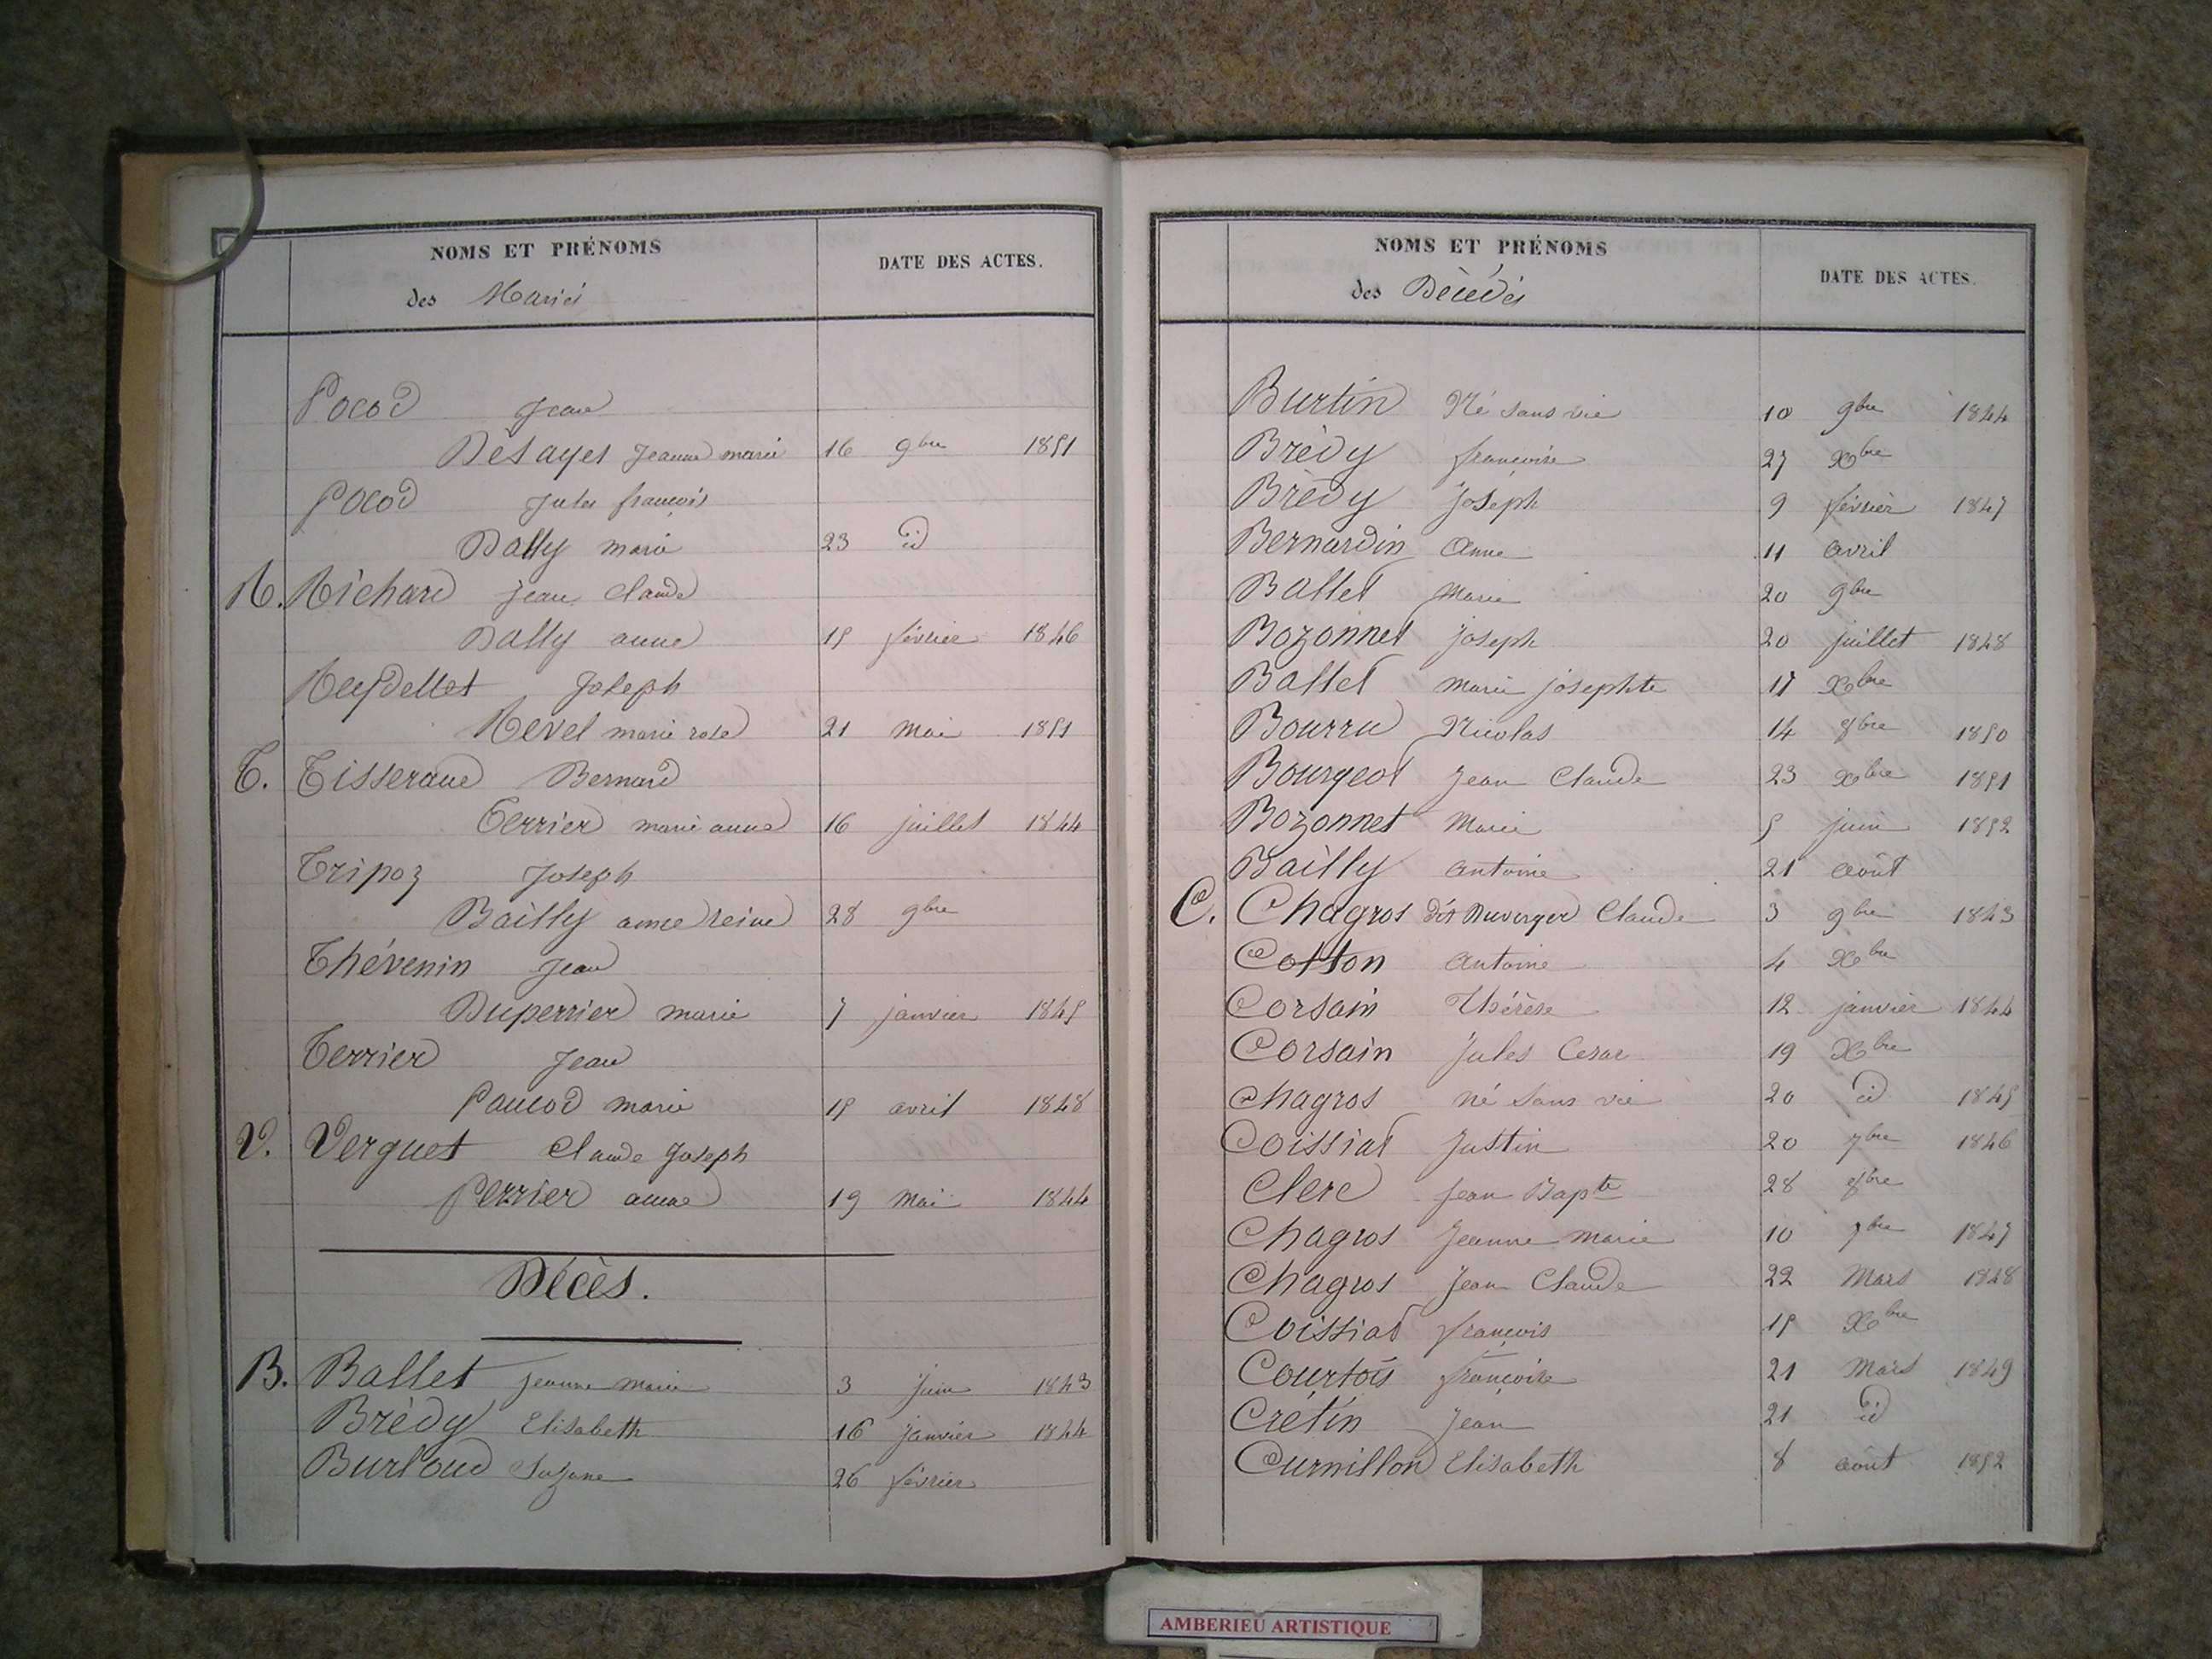 NOMS ET PRÉNOMS
DATE DES ACTES.
des Mariés
Pocod Jean
Désayes Jeanne marie 16 9bre 1851
Pocod Jules françois
Dally marie 23 id
R. Richard Jean Claude
Dally anne 15 février 1846
Reydellet Joseph
Revel marie rose 21 Mai 1851
T. Tisserand Bernard
Terrier marie anne 16 juillet 1844
Tripoz Joseph
Bailly anne reine 28 9bre
Thévenin Jean
Duperrier marie 7 janvier 1845
Terrier Jean
Paucod marie 15 avril 1848
V. Verguet Claude Joseph
Perrier anne 19 Mai 1844
Décès.
B. Ballet Jeanne marie 3 Juin 1843
Brédy Elisabeth 16 janvier 1844
Burloud Suzane 26 février
NOMS ET PRÉNOMS
DATE DES ACTES.
des Décédés
Burtin Né sans vie 10 9bre 1844
Brédy françoise 27 Xbre
Brédy Joseph 9 février 1847
Bernardin Anne 11 avril
Ballet Marie 20 9bre
Bozonnet Joseph 20 juillet 1848
Ballet marie josephte 17 Xbre
Bourru Nicolas 14 8bre 1850
Bourgeot Jean Claude 23 Xbre 1851
Bozonnet Marie 5 juin 1852
Bailly antoine 21 août
C. Chagros dit Duverger Claude 3 9bre 1843
Cotton Antoine 4 Xbre
Corsain Thérèse 12 janvier 1844
Corsain Jules Cesar 19 Xbre
Chagros né sans vie 20 id 1845
Coissiat Justin 20 7bre 1846
Clerc Jean Bapte 28 8bre
Chagros Jeanne marie 10 7bre 1847
Chagros Jean Claude 22 Mars 1848
Coissiat françois 15 Xbre
Courtois françoise 21 Mars 1849
Crétin Jean 21 id
Curnillon Elisabeth 8 août 1852
AMBERIEU ARTISTIQUE